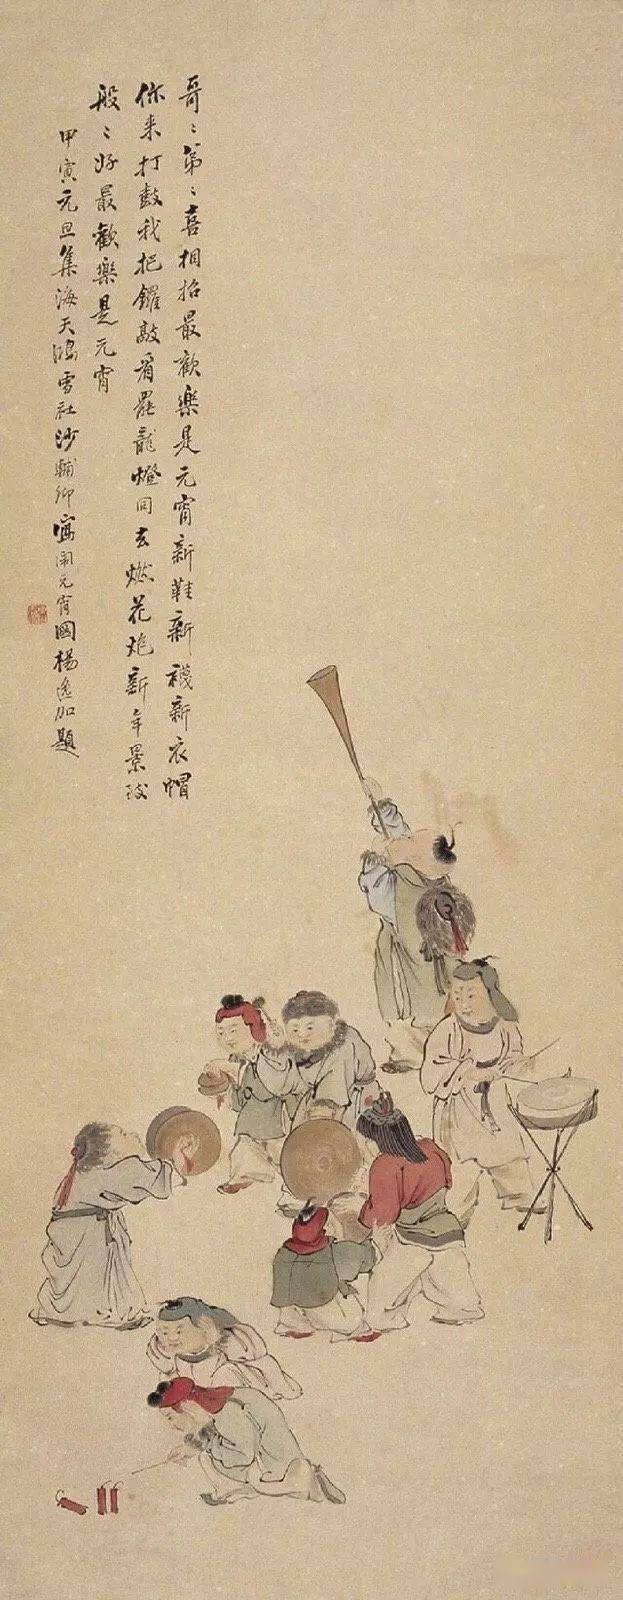 哥〻弟〻喜相招最歡樂是元宵新鞋新襪新衣帽
你来打鼓我把鑼敲看罷龍燈回去燃花炮新年景致
般〻好最歡樂是元宵
甲寅元旦集海天鴻雪社沙輔卿寫鬧元宵圖楊逸加題